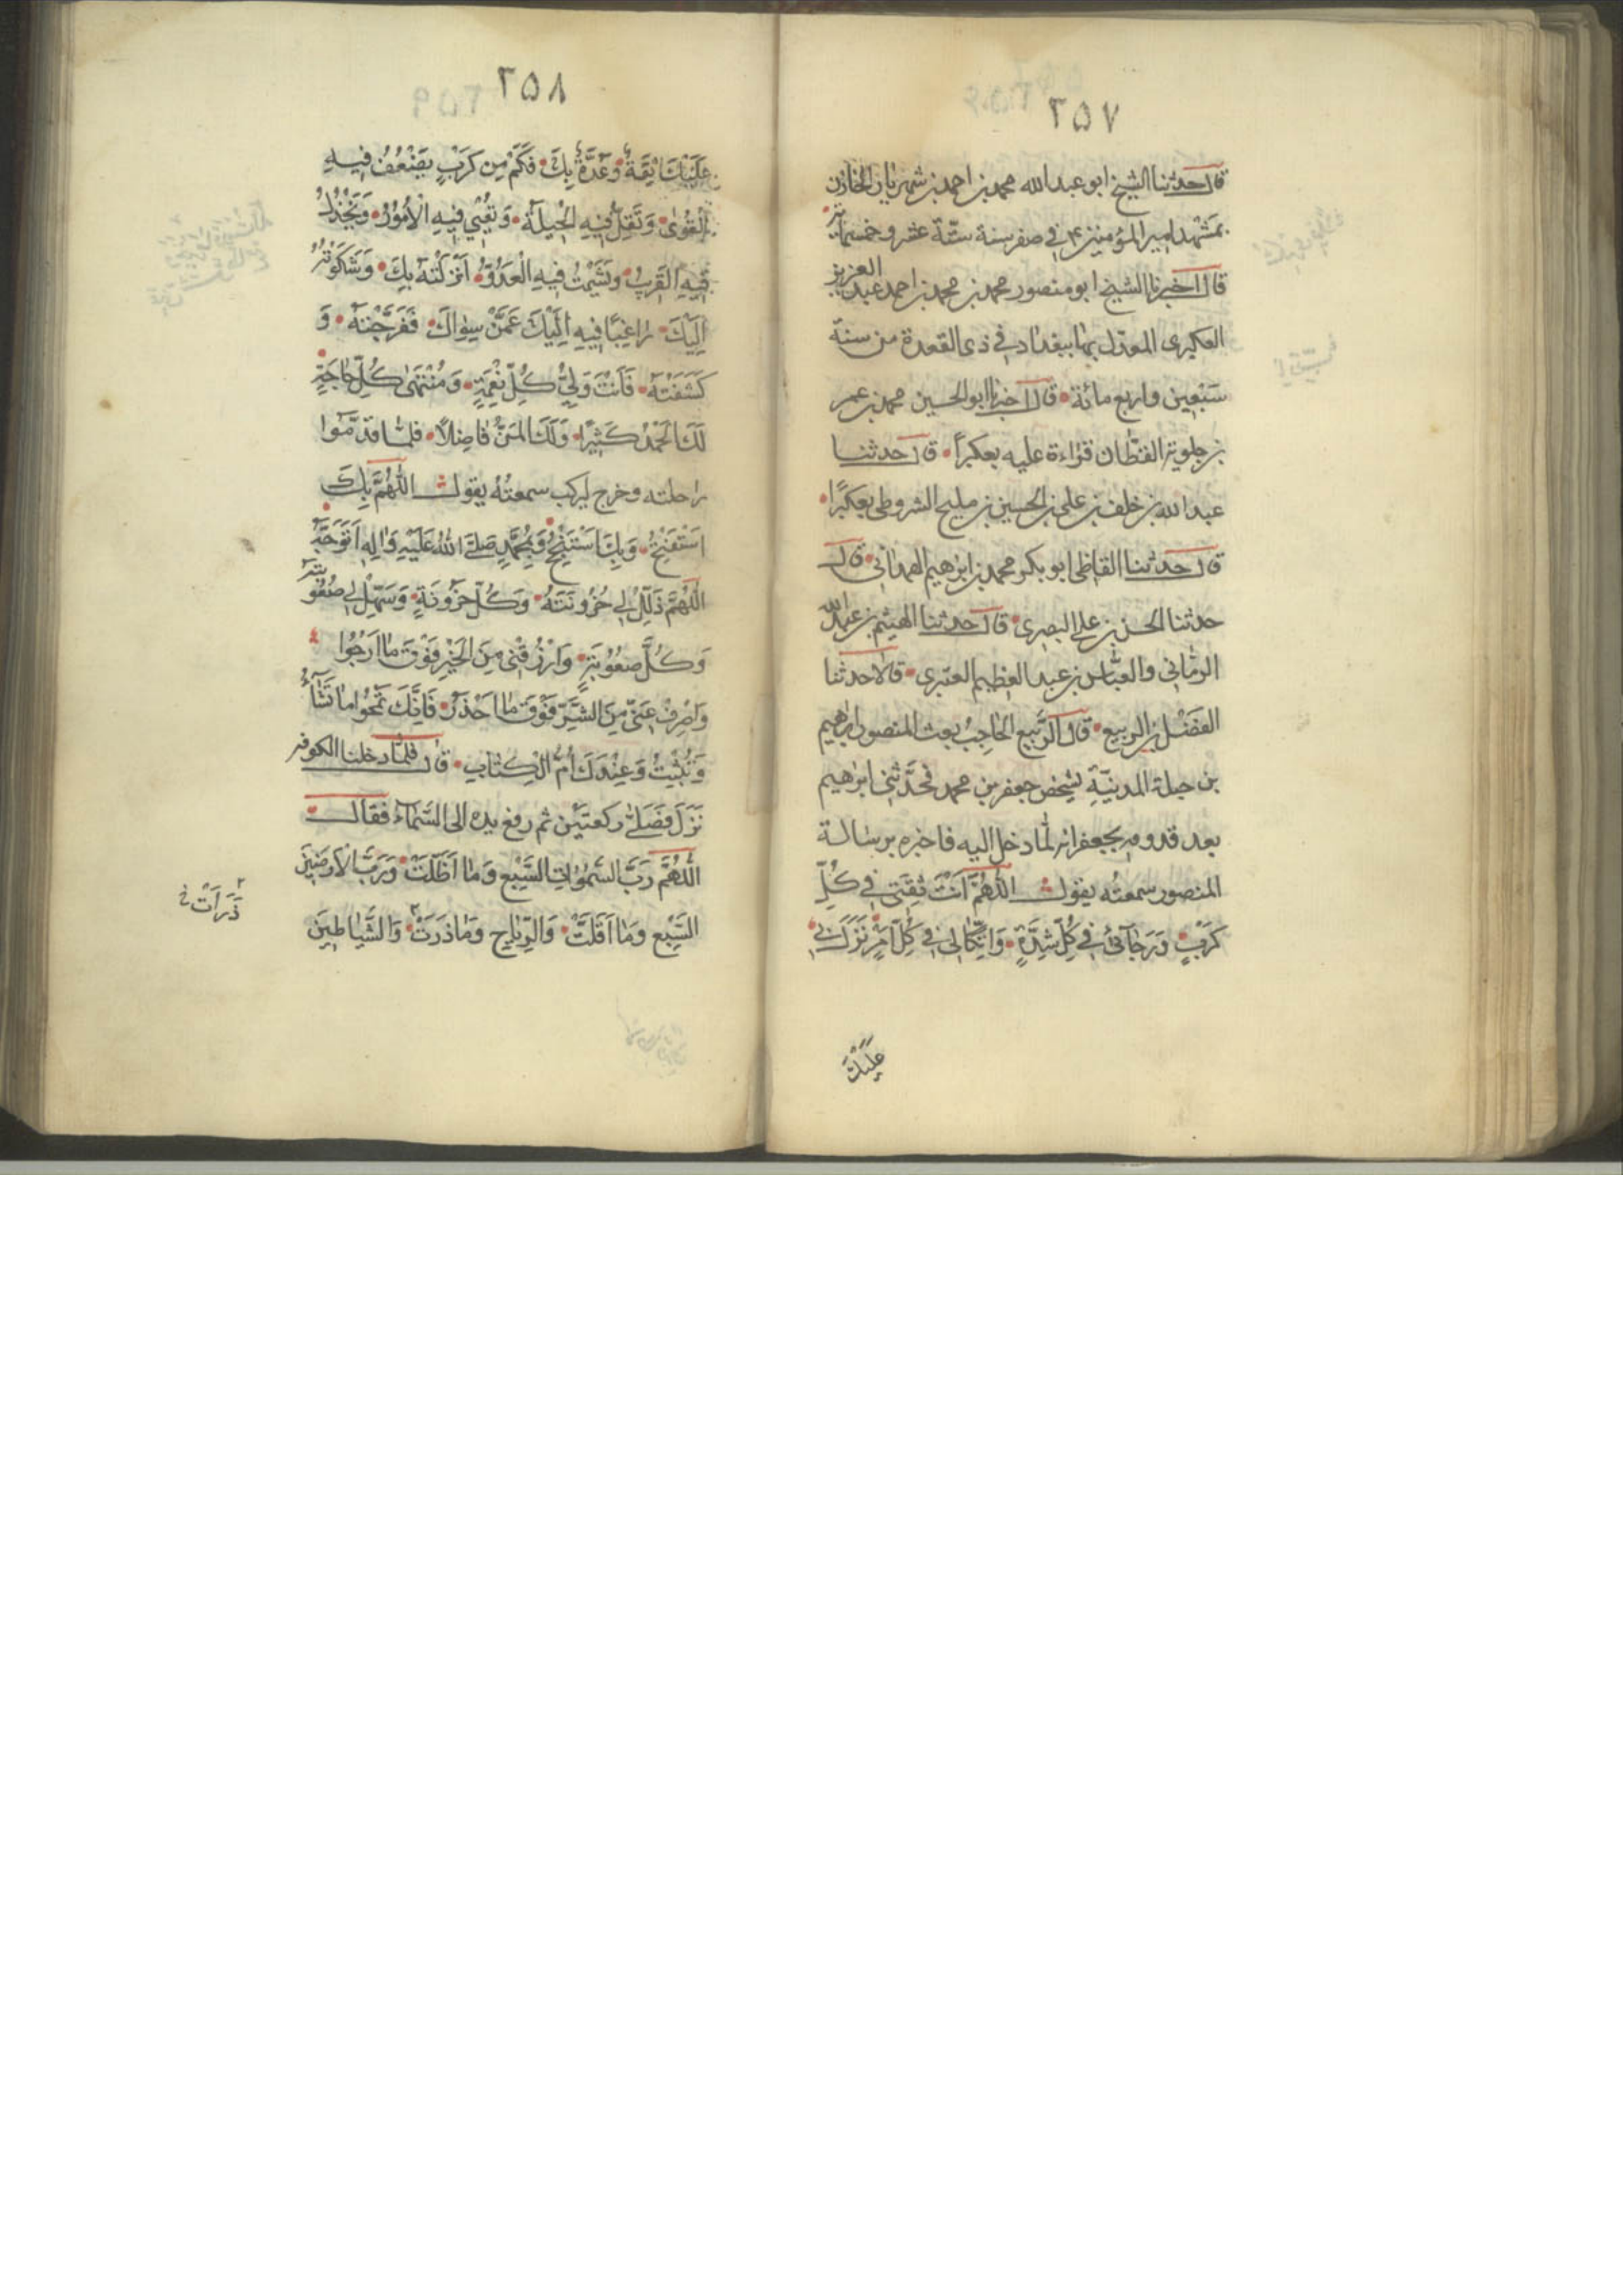 ٢٥٧
قال حدثنا الشيخ ابو عبد الله محمد بن احمد بن شهريار الخازن
بمشهد امير المؤمنين ع في صفر سنة ستّة عشر و خمسمائة
قال اخبرنا الشيخ ابو منصور محمد بن محمد بن احمد عبد العزيز
العكبرى المعدّل بها ببغداد في ذى القعدة من سنة
سَبْعين واربع مائة قال اخبرنا ابو الحسين محمد بن عمر
بن القطّان قراءة عليه بعكبراً قال حدثنا
عبد الله بن خلف بن على بن الحسين بن مليح الشروطى بعكبرًا
قال حدثنا القاظى ابو بكر محمد بن ابرهيم الهمدانى قال
حدثنا الحسن بن على البصرى قال حدثنا الهيثم بن عبد الله
الرمّانى والعبّاس بن عبد العظيم العنبرى قالا حدثنا
الفَضْل بن الربيع قال الرَّبيع الحاجِبُ بعث المنصور ابرهيم
بن جبلة المدينَةِ ليُشخص جعفر بن محمد فحدَّثنى ابرهيم
بعد قدومه بجعفر انه لمّا دخل اليه فاخبره برسالة
المنصور سمعتُه يقول اللّهُمَّ اَنْتَ ثِقَتى في كُلِّ
كَرْبٍ وَرَجآئى في كُلِّ شِدَّةٍ وَاتِّكالى في كُلِّ اَمْرٍ نَزَلَ بى
عَلَيْكَ
٢٥٨
عَلَيْكَ ثِقَةٌ وَعُدَّةٌ بِكَ فَكَمْ مِن كَرْبٍ يَضْعُفُ فيهِ
القُوىٰ وَتَقِلُّ فيهِ الْحيلَةُ وَتُعْيى فيهِ الْاُمُورُ وَيَخْذُلُ
فيهِ القَريبُ وَيَشْمِتُ فيهِ الْعَدُوُّ اَنْزَلْتُهُ بِكَ وَشَكَوْتُهُ
اِلَيْكَ راغِبًا فيهِ اِلَيْكَ عَمَّنْ سِواكَ فَفَرَّجْتَهُ وَ
كَشَفْتَهُ فَاَنْتَ وَلِيُّ كُلِّ نِعْمَةٍ وَمُنْتَهىٰ كُلِّ حاجَةٍ
لَكَ الْحَمْدُ كَثيرًا وَلَكَ المَنُّ فاضِلاً فلمّا قدّموا
راحلته وخرج ليركب سمعتُهُ يقول اللّهُمَّ بِكَ
اَسْتَفْتِحُ وَبِكَ اَسْتَنْجِحُ وَبِمُحَمَّدٍ صَلَّى اللهُ عَلَيْهِ وَالِهِ اَتَوَجَّهُ
اللّهُمَّ ذَلِّلْ لى حُزُونَتَهُ وَكُلَّ حُزُونَةٍ وَسَهِّلْ لى صُعُوبَتَهُ
وَكُلَّ صُعُوبَةٍ وَارْزُقْنى مِنَ الْخَيْرِ فَوْقَ ما اَرْجُوا
وَاصْرِفْ عَنّى مِنَ الشَّرِّ فَوْقَ ما اَحْذَرُ فَاِنَّكَ تَمْحُوا ما تَشآءُ
وَتُثْبِتُ وَعِنْدَكَ اُمُّ الْكِتابِ قال فلمّا دخلنا الكوفه
نَزَلَ فَصَلّىٰ ركعتَيْن ثم رفع يده الى السَّمآء فقال
اللّهُمَّ رَبَّ السَّمٰواتِ السَّبْعِ وَما اَظَلَّتْ وَرَبَّ الْاَرَضينَ
السَّبْعِ وَما اَقَلَّتْ وَالرِّياحِ وَما ذَرَتْ وَالشَّياطينَ
ذَرَاَتْ